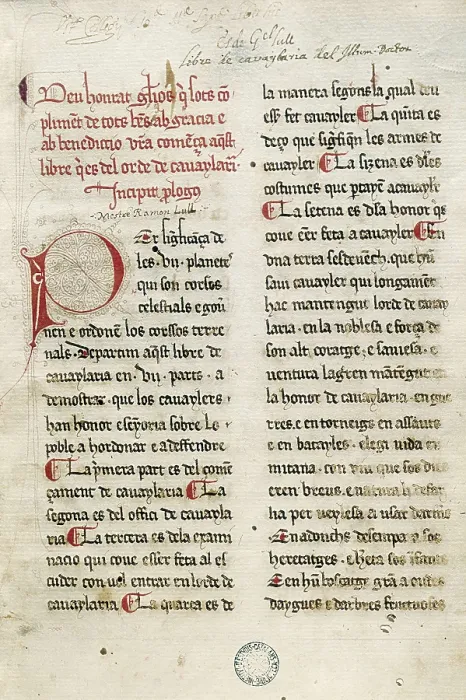 Es de Gel Lull
Libre de cavaylaria del Illum. Doctor
Deu honrat glios q̃ sots co
pliment de tots bẽs ab gracia e
ab benedictio vr̃a comẽça aq̃st
libre q̃ es del orde de cavaylari
Incipit plogus
Mestre Ramon Lull
Per significãça de
les .vii. planetes
qui son corsos
celestials e gou
nen e ordonẽ los corssos terre
nals. Departim aq̃st libre de
cavaylaria en .vii. parts. a
demostrar que los cavaylers
han honor e seyoria sobre lo
poble a hordonar e a deffendre
La pimera part es del comẽ
çament de cavaylaria La
segona es del offici de cavayla
ria La tercera es dela exami
nacio qui cove esser feta al es
cuder con vol entrar en lorde de
cavaylaria La quarta es de
la manera segons la qual deu
esser fet cavayler La quĩta es
deço que sigfiq̃n les armes de
cavayler La sizena es dles
costumes que ptayẽ a cavayler
La setena es dla honor q̃s
cove eẽr feta a cavayler En
una terra sesdevẽch que hũ
savi cavayler qui longament
hac mantengut lorde de cavay
laria en la noblesa e força de
son alt coratge e saviesa e
ventura lagren mãtẽgut
la honor de cavaylaria en gue
rres e en torneigs en assauts
e en batayles elegi vida er
mitana con viu que los dies
eren breus e natura li defay
ha per veylesa a usar darmes
E nadonchs desempara sos
heretatges e heta sos ifants
E en hũ boscatge grã a
daygues e darbres fructuoses